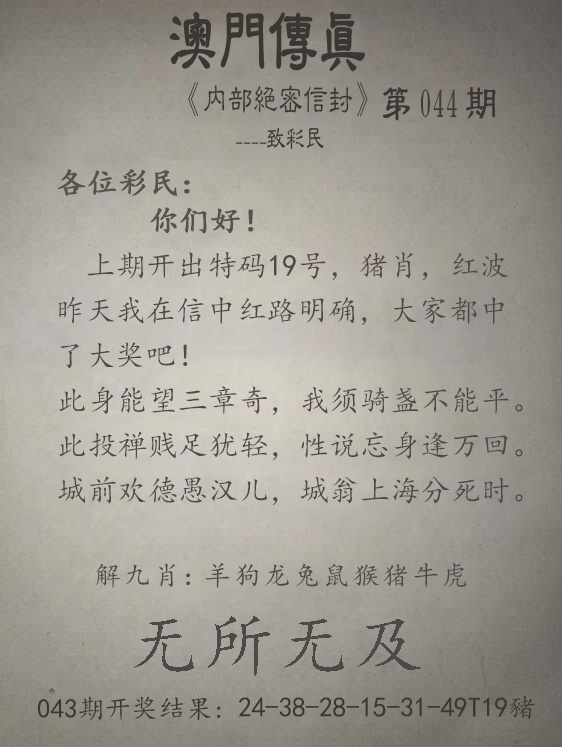 澳門傳眞
《内部絕密信封》第044期
----致彩民
各位彩民:
你们好!
上期开出特码19号，猪肖，红波
昨天我在信中红路明确，大家都中
了大奖吧!
此身能望三章奇，我须骑盏不能平。
此投禅贱足犹轻，性说忘身逢万回。
城前欢德愚汉儿，城翁上海分死时。
解九肖:羊狗龙兔鼠猴猪牛虎
无所无及
043期开奖结果: 24-38-28-15-31-49T19豬